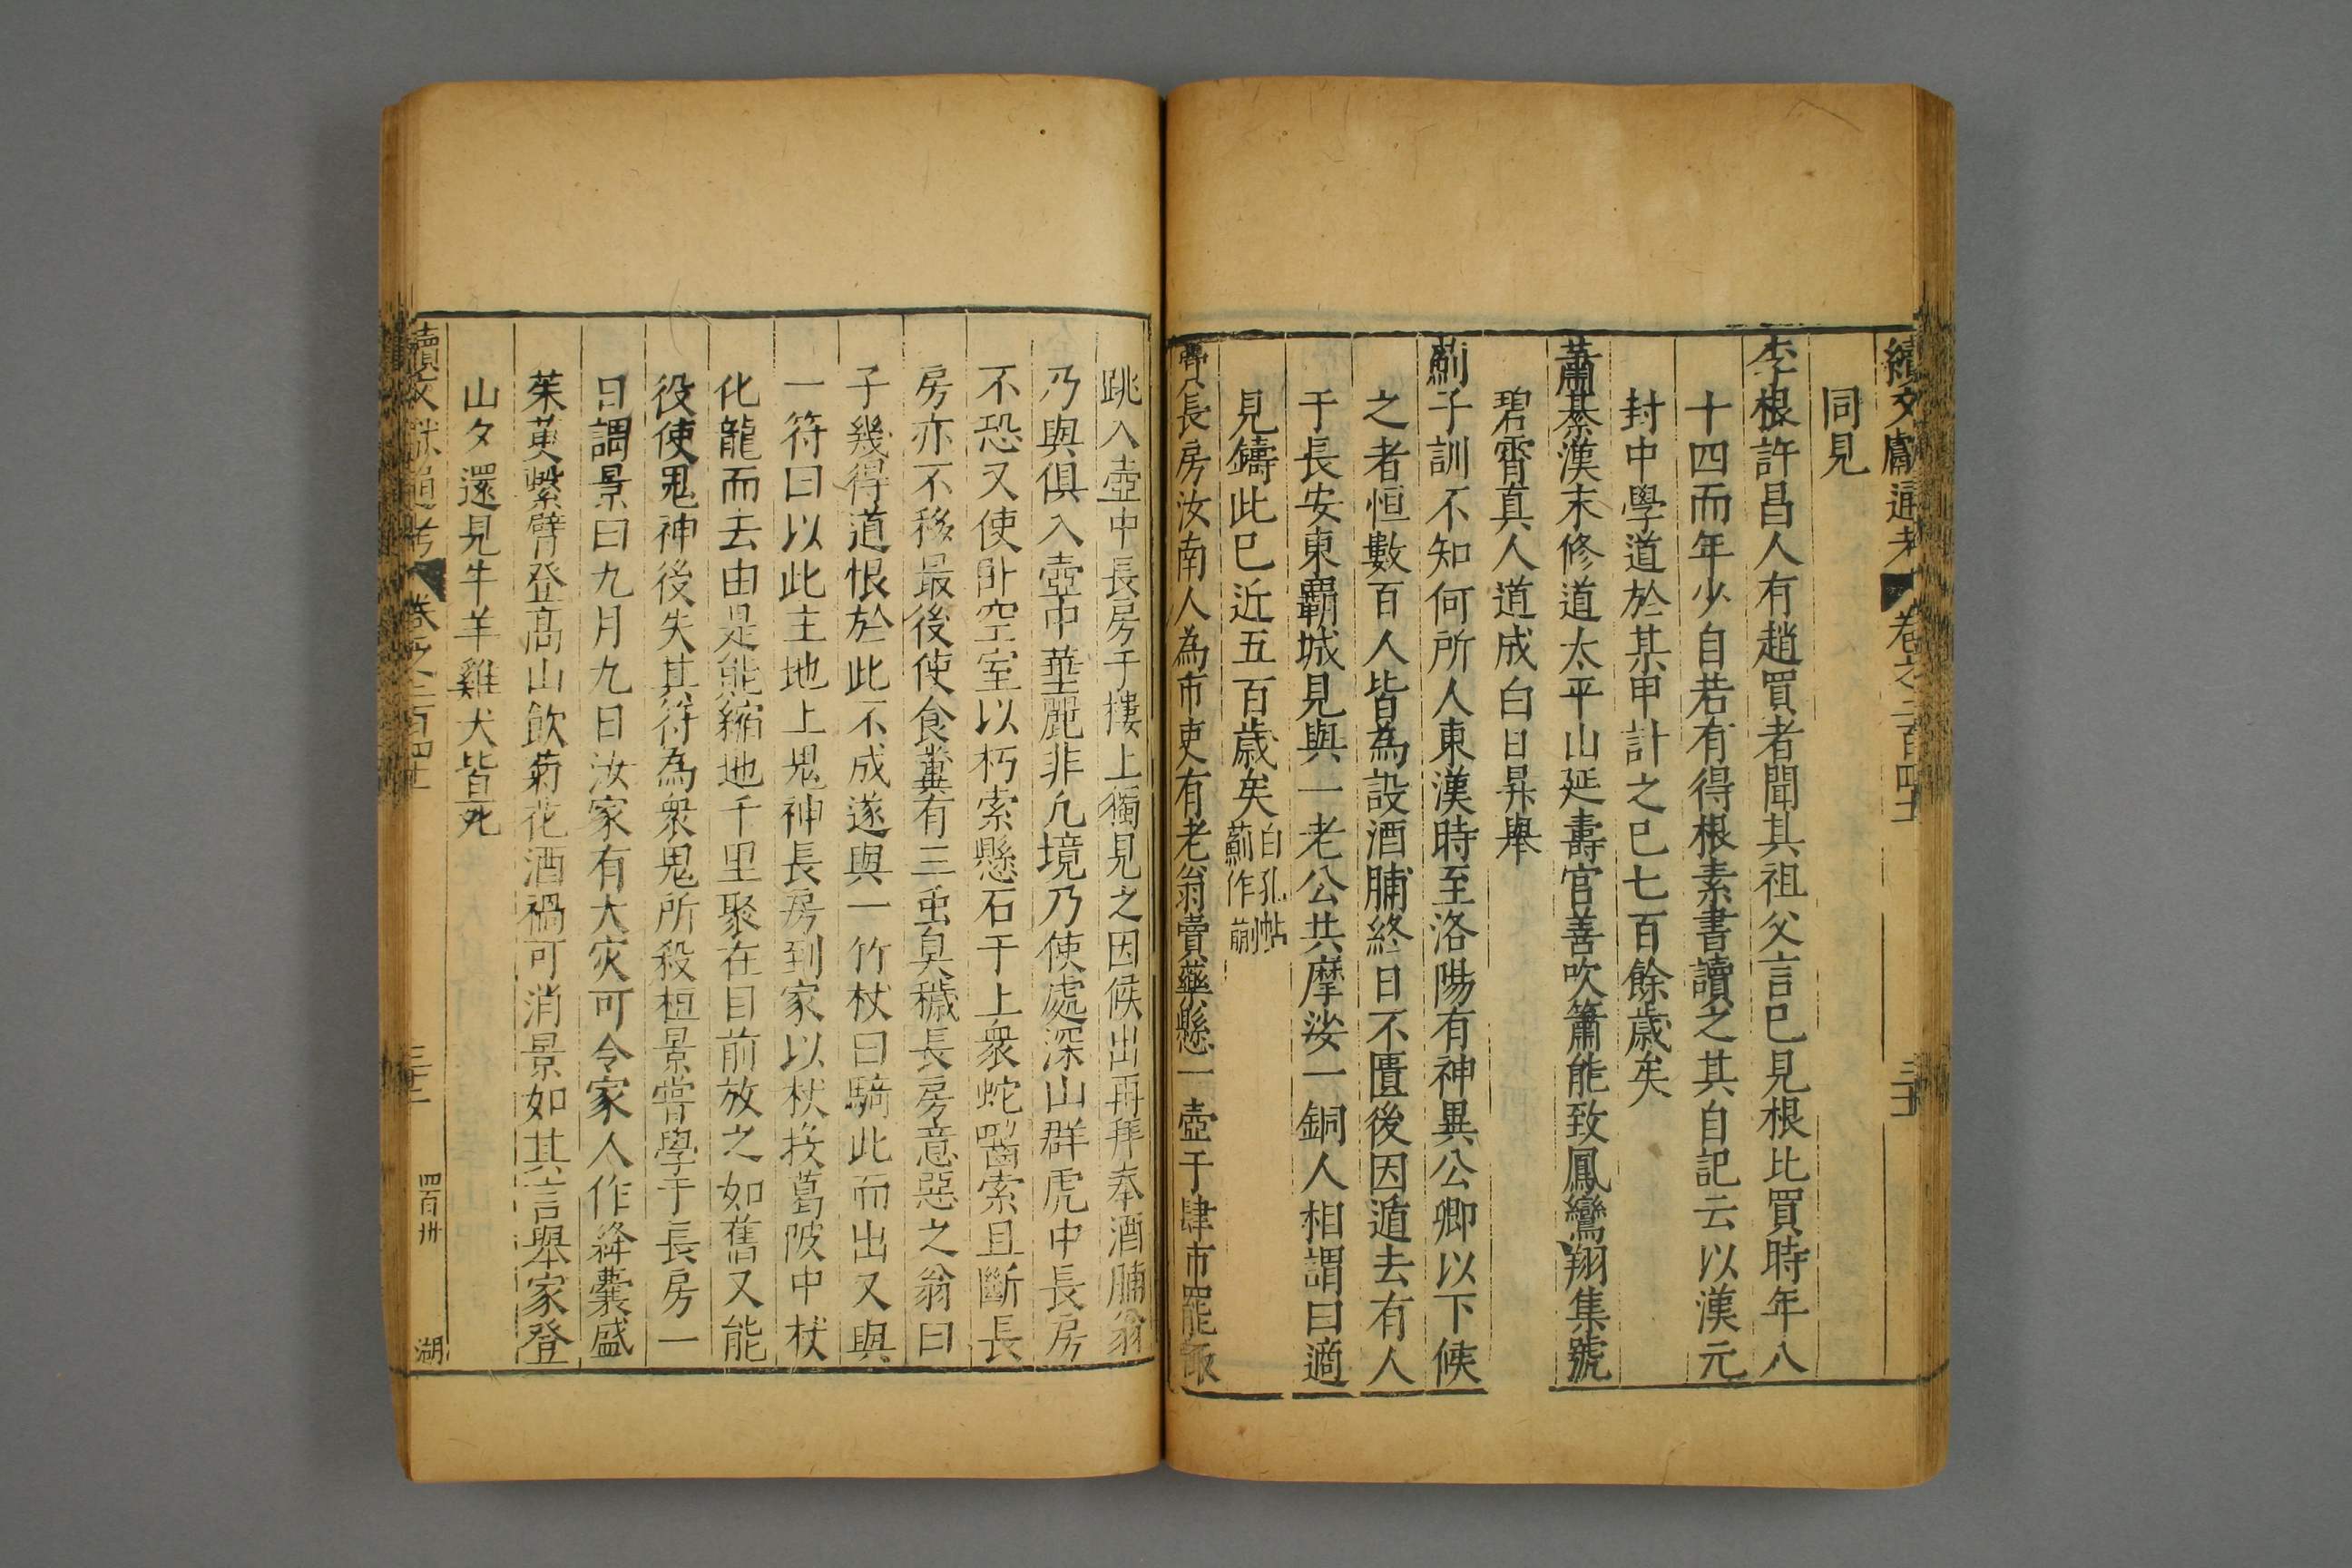 續文獻通考 卷之二百四十
同見
李根許昌人有趙買者聞其祖父言已見根比買時年八
十四而年少自若有得根素書讀之其自記云以漢元
封中學道於某甲計之已七百餘歲矣
蕭綦漢末修道太平山延壽官善吹簫能致鳳鸞翔集號
碧霄真人道成白日昇舉
薊子訓不知何所人東漢時至洛陽有神異公卿以下候
之者恒數百人皆為設酒脯終日不匱後因遁去有人
于長安東霸城見與一老公共摩娑一銅人相謂曰適
見鑄此已近五百歲矣白孔帖薊作蒯
費長房汝南人為市吏有老翁賣藥懸一壺于肆市罷飯
跳入壺中長房于樓上獨見之因候出再拜奉酒脯翁
乃與俱入壺中華麗非凢境乃使處深山群虎中長房
不恐又使卧空室以朽索懸石于上衆蛇齧索且斷長
房亦不移最後使食糞有三虫臭穢長房意惡之翁曰
子幾得道恨於此不成遂與一竹杖曰騎此而出又與
一符曰以此主地上鬼神長房到家以杖投葛陂中杖
化龍而去由是能縮地千里聚在目前放之如舊又能
役使鬼神後失其符為衆鬼所殺桓景嘗學于長房一
日謂景曰九月九日汝家有大灾可令家人作絳囊盛
茱萸繫臂登高山飲菊花酒禍可消景如其言舉家登
山夕還見牛羊雞犬皆死
續文獻通考 卷之二百四十 四百卅 湖